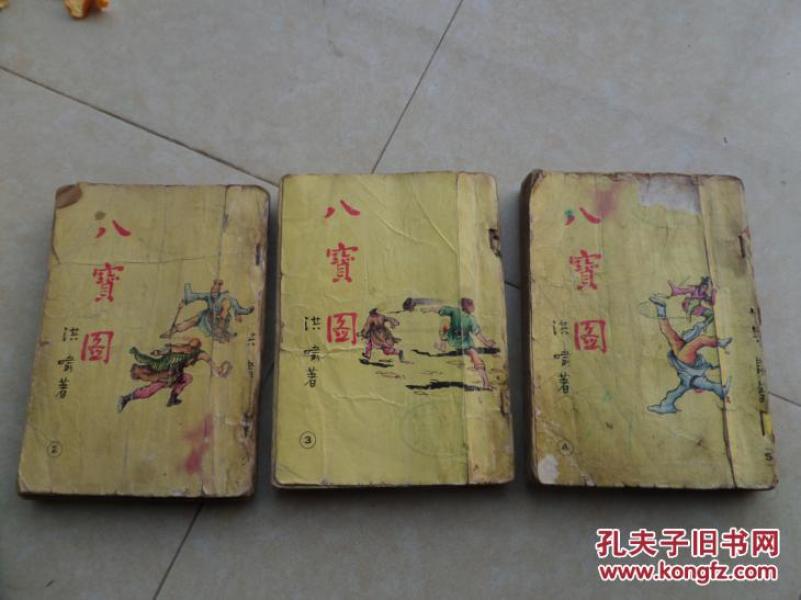 八寶圖
洪
著
②
八寶圖
洪
著
③
八寶圖
洪
著
④
孔夫子旧书网
www.kongfz.com